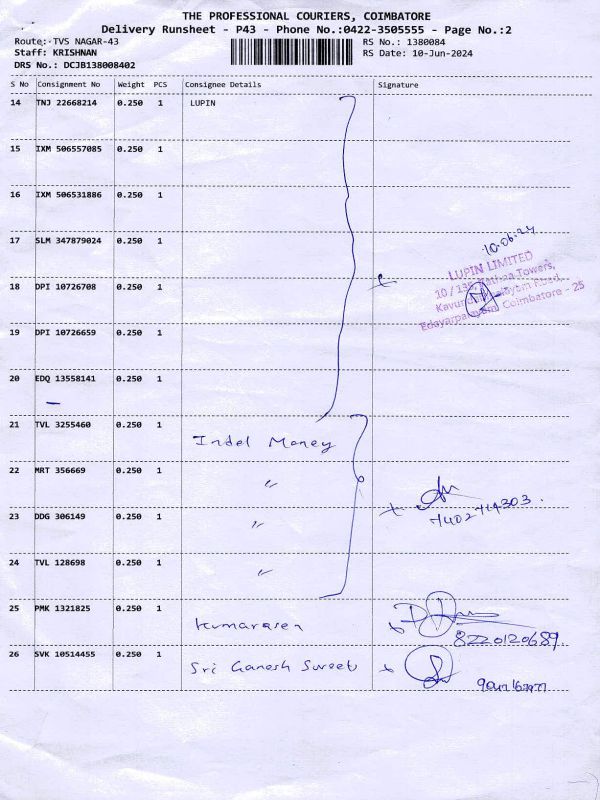 THE PROFESSIONAL COURIERS, COIMBATORE
Delivery Runsheet - P43 - Phone No.:0422-3505555 - Page No.:2
Route: TVS NAGAR-43 RS No.: 1380084
Staff: KRISHNAN RS Date: 10-Jun-2024
DRS No.: DCJB138008402
S No Consignment No Weight PCS Consignee Details Signature
14 TNJ 22668214 0.250 1 LUPIN
15 IXM 506557085 0.250 1
16 IXM 506531886 0.250 1
17 SLM 347879024 0.250 1
10-06-24
LUPIN LIMITED
18 DPI 10726708 0.250 1
10 / Towers,
Road,
Coimbatore - 25
19 DPI 10726659 0.250 1
20 EDQ 13558141 0.250 1
21 TVL 3255460 0.250 1 Indel Money
22 MRT 356669 0.250 1 "
23 DDG 306149 0.250 1 " 7402714303.
24 TVL 128698 0.250 1 "
25 PMK 1321825 0.250 1 Kumarasen 8220120689.
26 SVK 10514455 0.250 1 Sri Ganesh Sweets